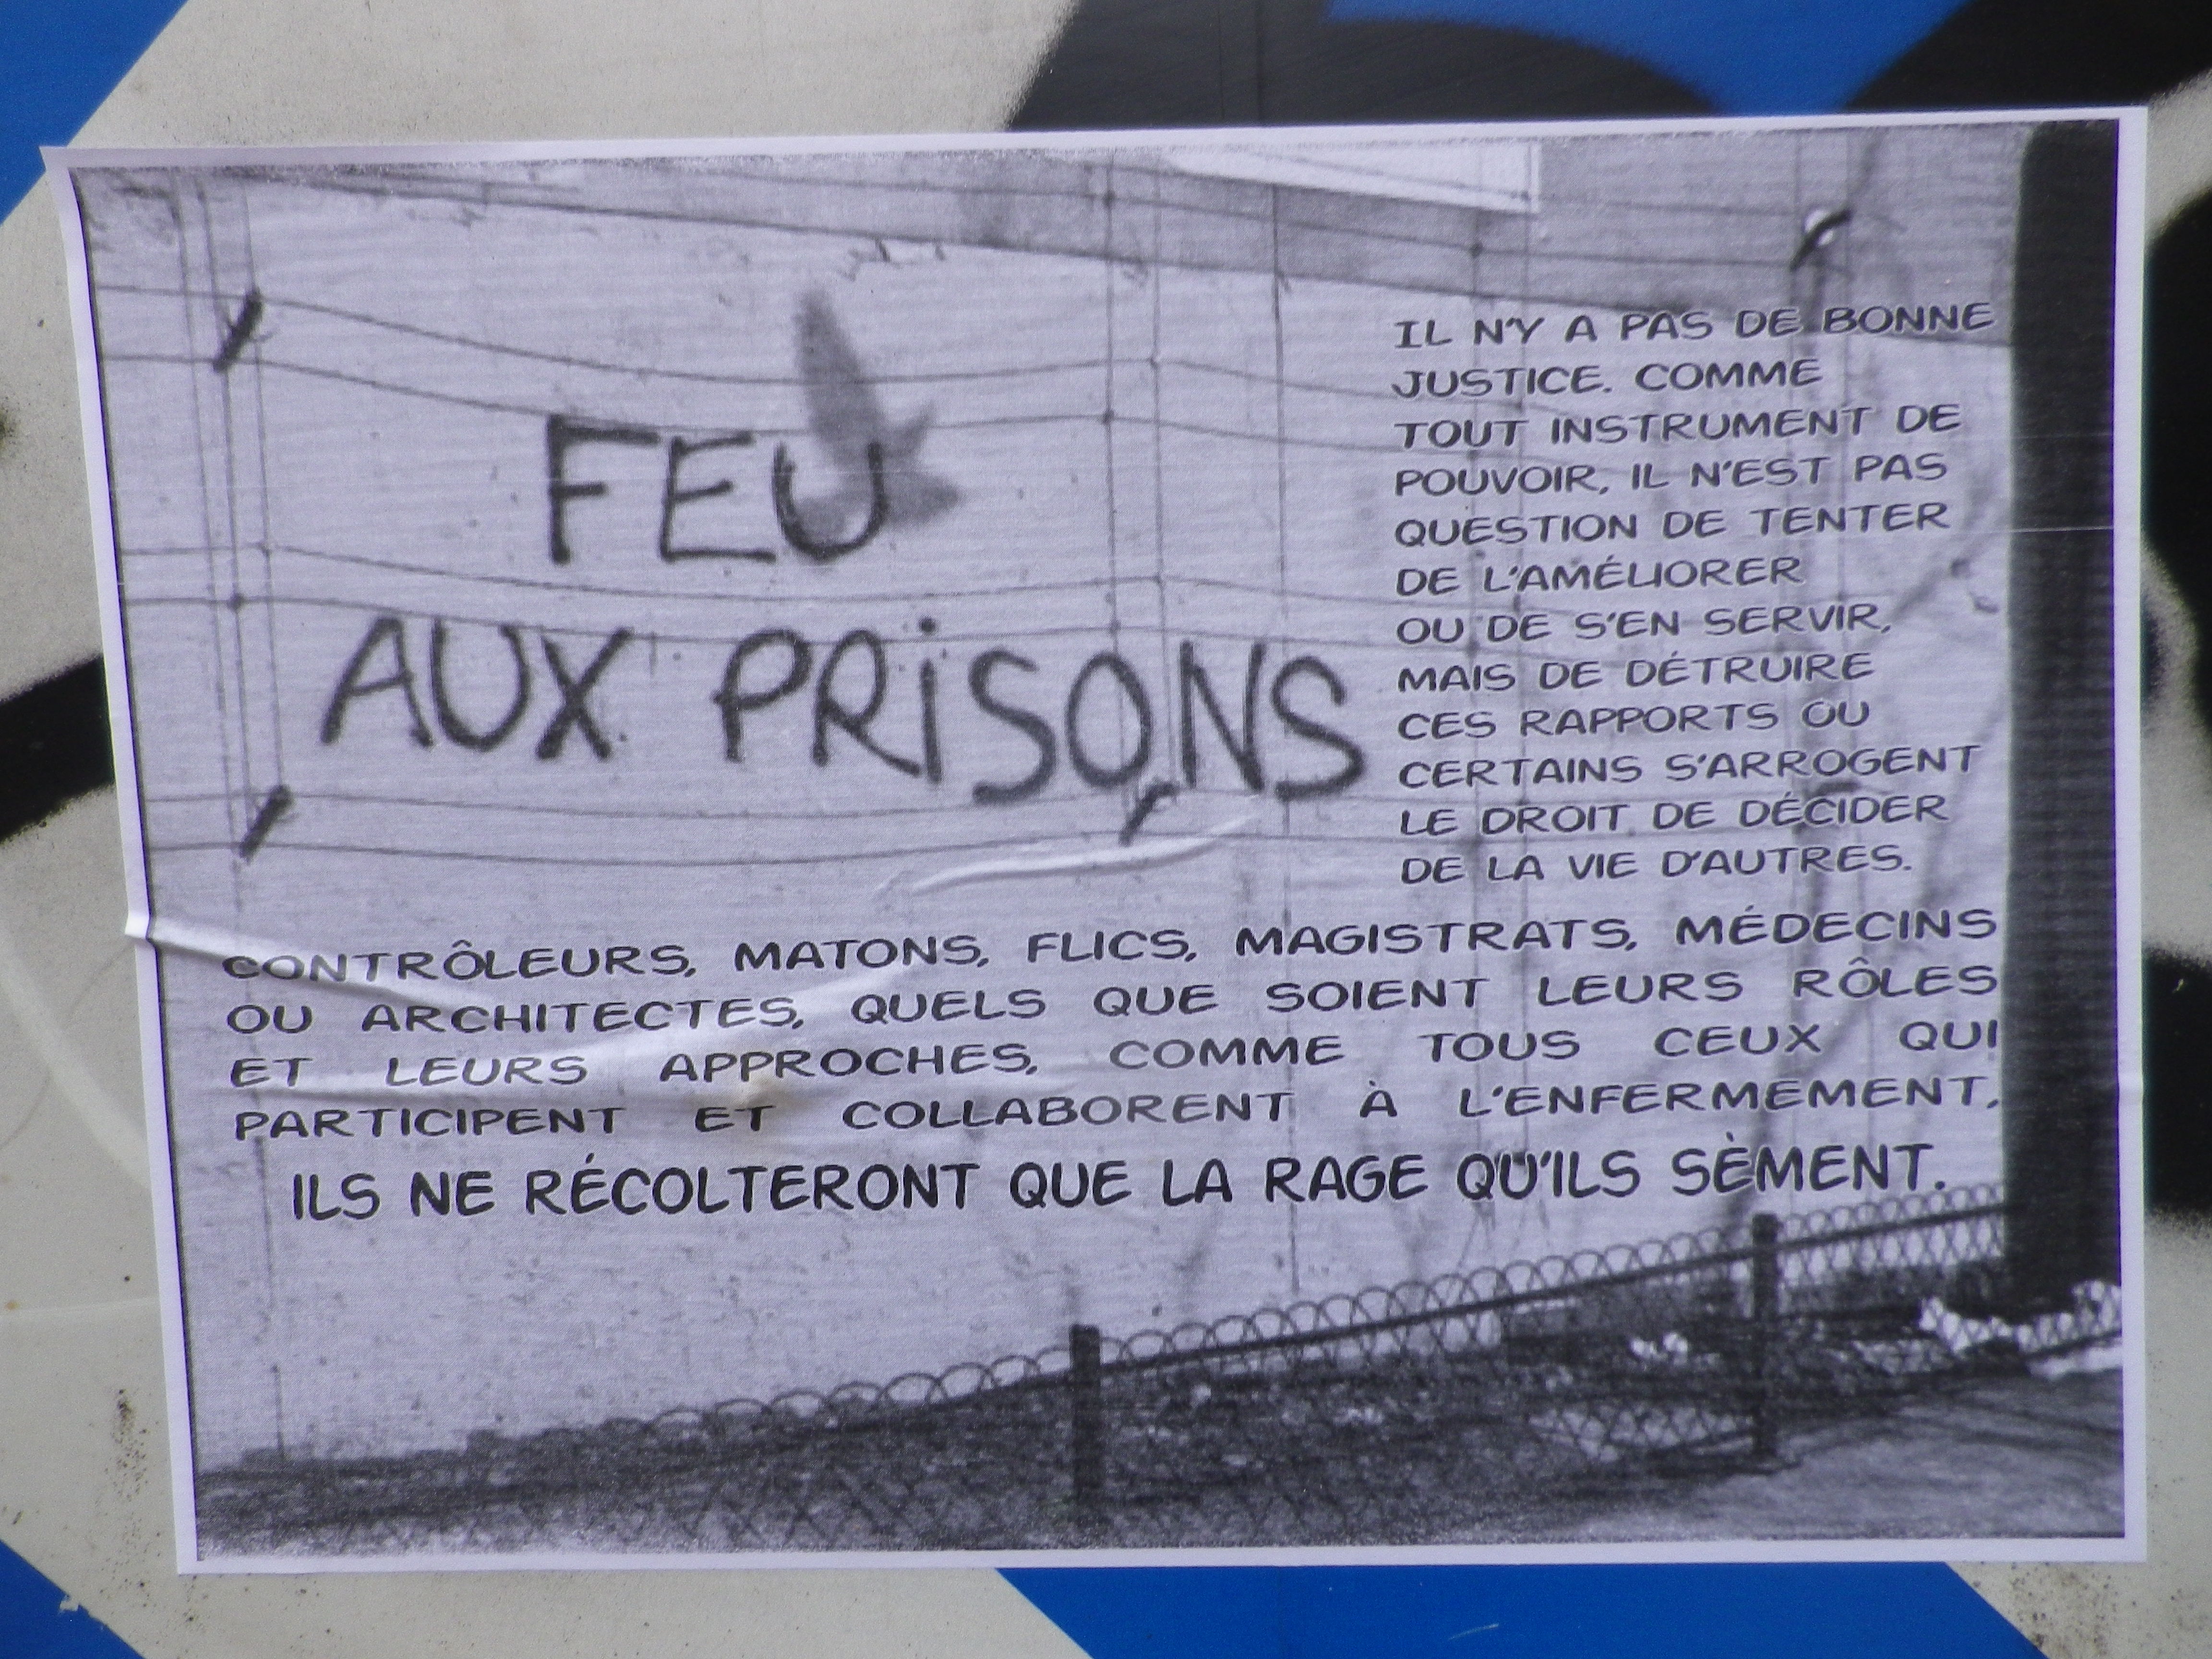 FEU
AUX PRiSONS
IL N'Y A PAS DE BONNE
JUSTICE. COMME
TOUT INSTRUMENT DE
POUVOIR, IL N'EST PAS
QUESTION DE TENTER
DE L'AMÉLIORER
OU DE S'EN SERVIR,
MAIS DE DÉTRUIRE
CES RAPPORTS OÙ
CERTAINS S'ARROGENT
LE DROIT DE DÉCIDER
DE LA VIE D'AUTRES.
CONTRÔLEURS, MATONS, FLICS, MAGISTRATS, MÉDECINS
OU ARCHITECTES, QUELS QUE SOIENT LEURS RÔLES
ET LEURS APPROCHES, COMME TOUS CEUX QUI
PARTICIPENT ET COLLABORENT À L'ENFERMEMENT,
ILS NE RÉCOLTERONT QUE LA RAGE QU'ILS SÈMENT.